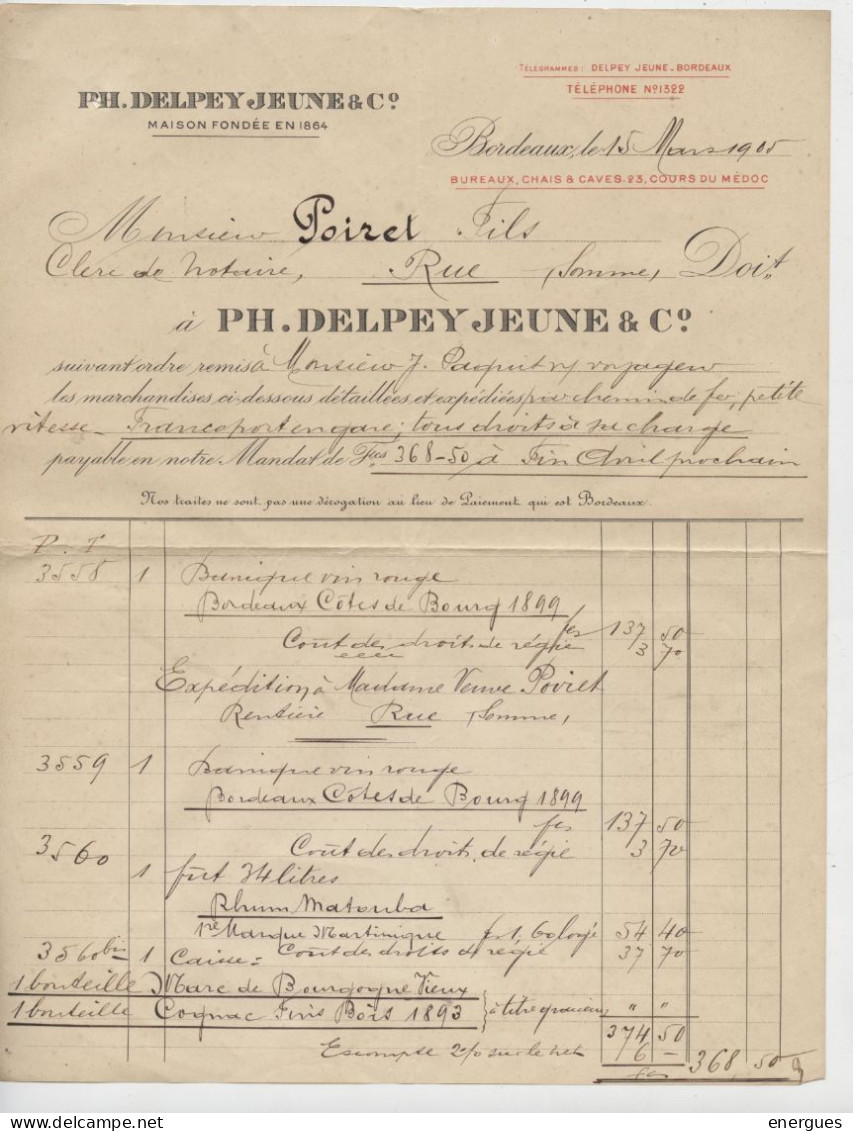 TÉLÉGRAMMES: DELPEY JEUNE-BORDEAUX
TÉLÉPHONE Nº1322
PH. DELPEY JEUNE & Cº
MAISON FONDÉE EN 1864
Bordeaux, le 15 Mars 1905
BUREAUX, CHAIS & CAVES-23, COURS DU MÉDOC
Monsieur Poiret Fils
Clerc de Notaire, Rue (Somme) Doit
à PH. DELPEY JEUNE & Cº
suivant ordre remis à Monsieur J. n/ voyageur
les marchandises ci-dessous détaillées et expédiées par chemin de fer, petite
vitesse - Franco port en gare; tous droits à sa charge
payable en notre Mandat de Fcs 368-50 à Fin Avril prochain
Nos traites ne sont pas une dérogation au lieu de Paiement qui est Bordeaux.
P. J
3558 1 Barrique vin rouge
Bordeaux Côtes de Bourg 1899
fcs 137 50
Coût des droits de régie 3 70
Expédition à Madame Veuve Poiret
Rentière Rue (Somme)
3559 1 Barrique vin rouge
Bordeaux Côtes de Bourg 1899
fcs 137 50
Coût des droits de régie 3 70
3560
1 fût 34 litres
Rhum Matouba
1re Marque Martinique f 1.60 logé 54 40
3560 bis 1 Caisse = Coût des droits de régie 37 70
1 bouteille Marc de Bourgogne Vieux
1 bouteille Cognac Fins Bois 1893 } à titre gracieux " "
374 50
Escompte 2% sur le net 6 -
fcs 368,50
energues